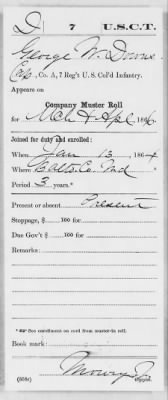 D 7 U.S.C.T.
George W. Downs
Cop., Co. A, 7 Reg't U. S. Col'd Infantry.
Appears on
Company Muster Roll
for Mch & Apl, 1866
Joined for duty and enrolled:
When Jan 13, 1864
Where Balto. Co. Md
Period 3 years.*
Present or absent Present
Stoppage, $ 100 for
Due Gov't $ 100 for
Remarks:
*See enrollment on card from muster-in roll.
Book mark:
(858c) Copyist.